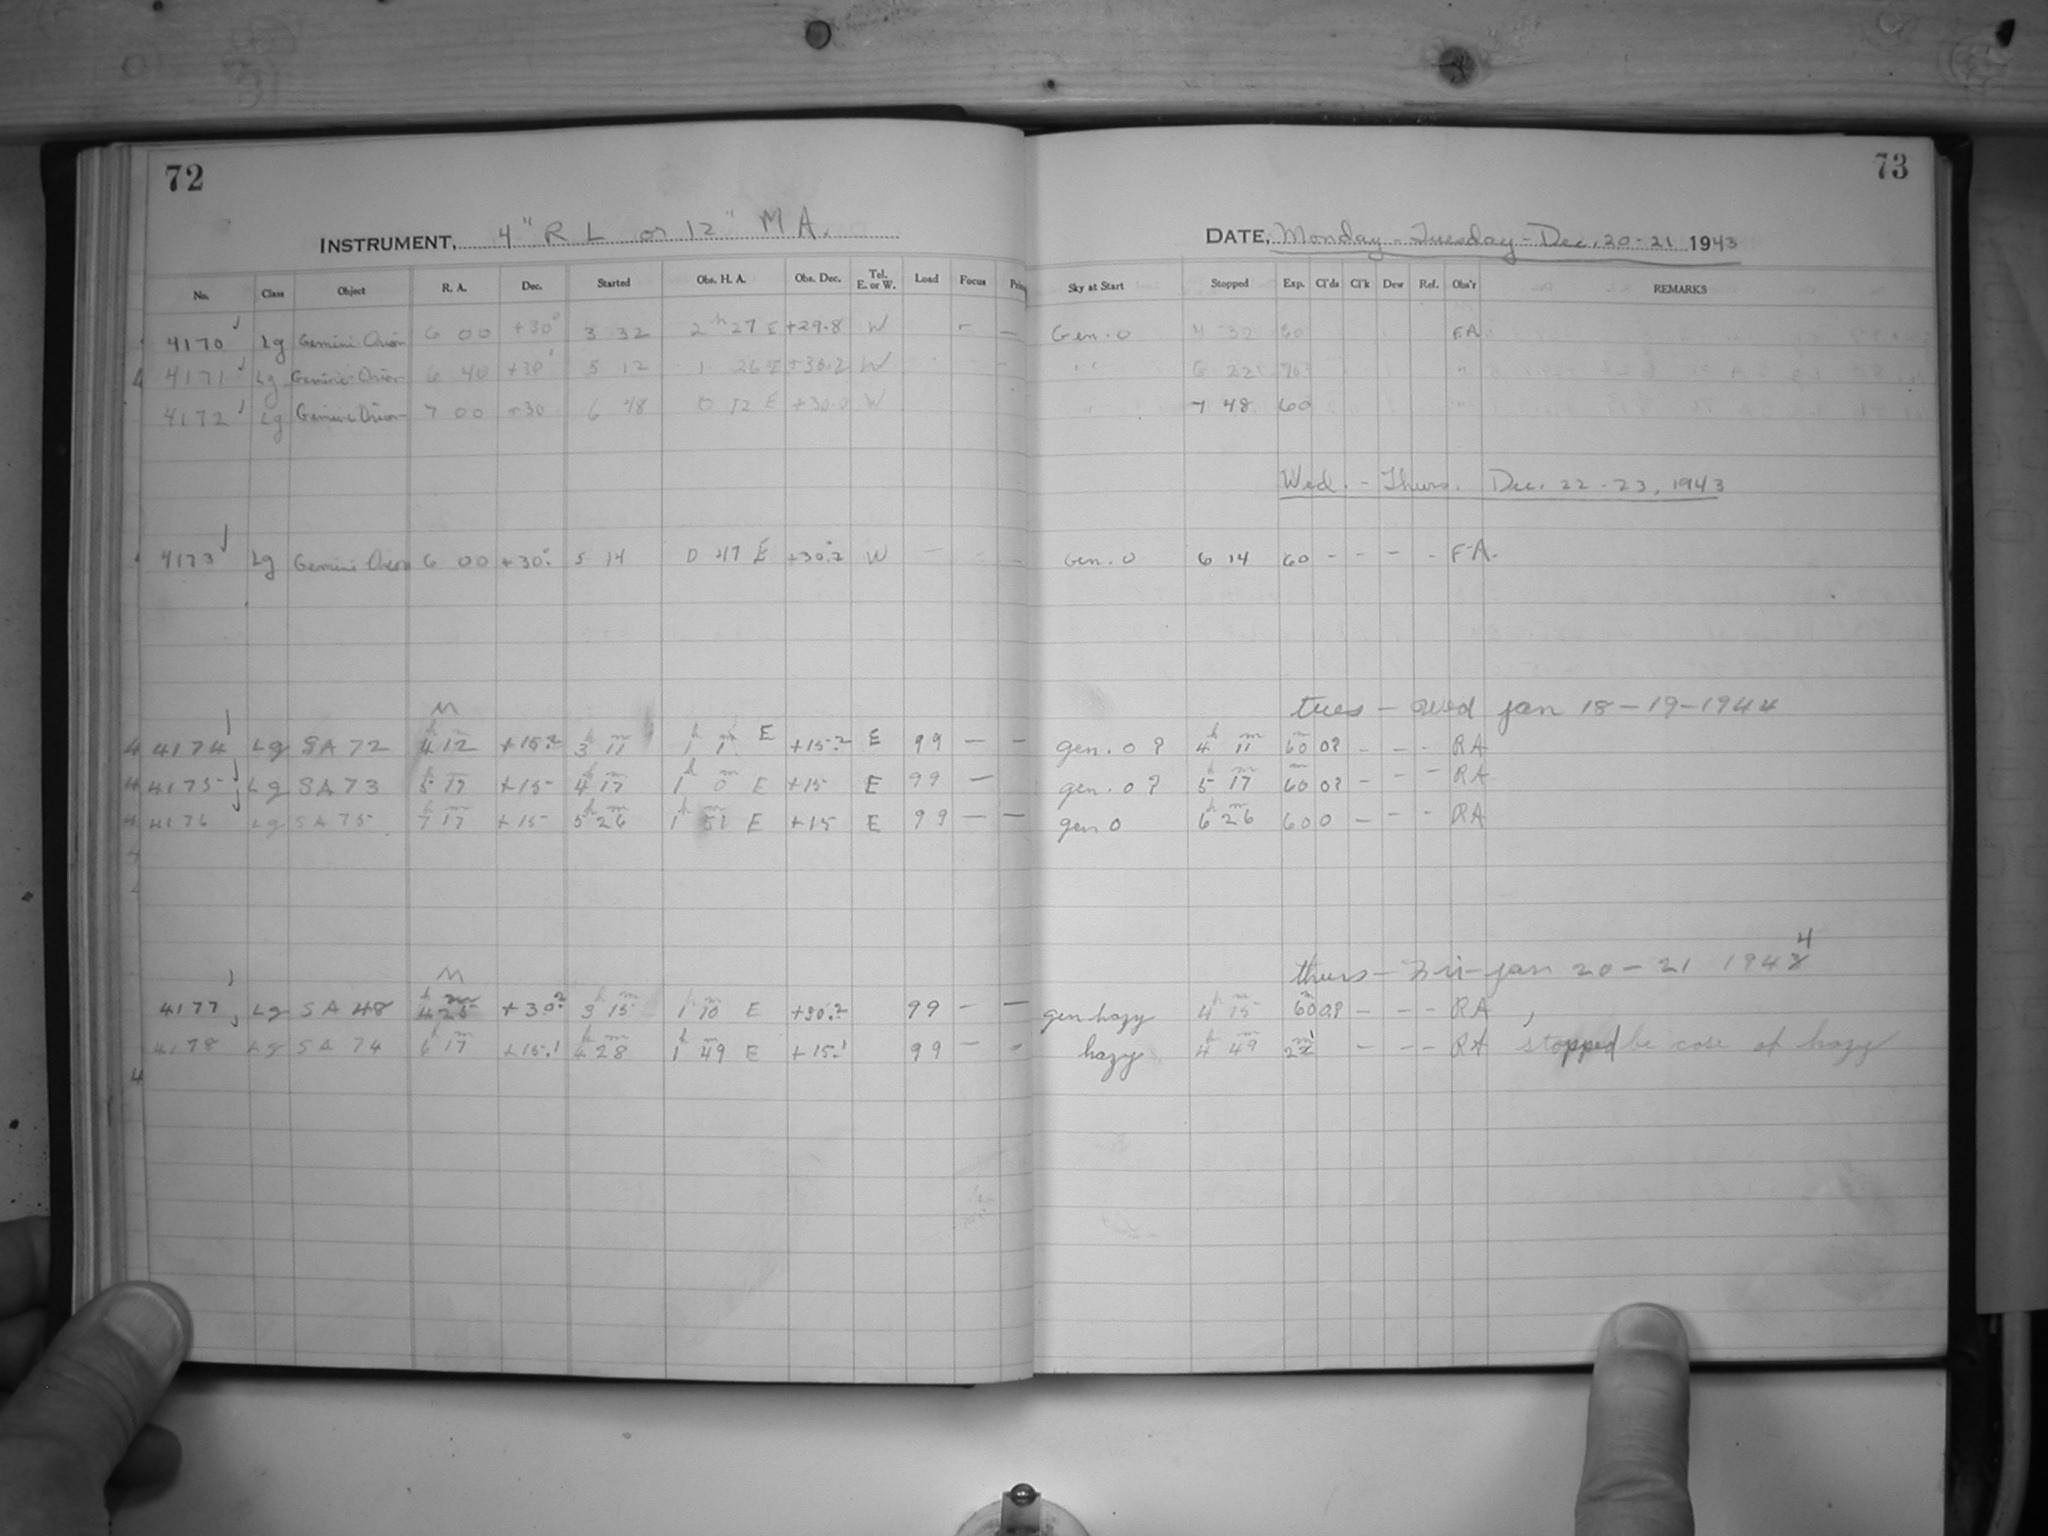 72
73
INSTRUMENT, 4" R L or 12" M A.
DATE, Monday - Tuesday - Dec. 20-21 1943
No. Class Object R. A. Dec. Started Obs. H. A. Obs. Dec. Tel. E. or W. Load Focus Sky at Start Stopped Exp. Cl'ds Cl'k Dew Ref. Obs'r REMARKS
4170 Lg Gemini Orion 6 00 +30° 3 32 2h 27 E +29.8 W - - Gen. 0 4 32 60 FA
4171 Lg Gemini Orion 6 40 +30° 5 12 1 26 E +30.2 W " " 6 22 70 "
4172 Lg Gemini Orion 7 00 +30 6 48 0 12 E +30.0 W " 7 48 60
Wed. - Thurs. Dec. 22-23, 1943
4173 Lg Gemini Orion 6 00 +30° 5 14 0 47 E +30.2 W - Gen. 0 6 14 60 - - - - F-A-
tues - wed jan 18-19-1944
M
4174 Lg SA 72 4h 12m +15.2 3h 11m 1h 1m E +15.2 E 99 - - gen. 0? 4h 11m 60m 0? - - - RA
4175 Lg SA 73 5h 17m +15 4h 17m 1h 0m E +15 E 99 - gen. 0? 5h 17m 60m 0? - - - RA
4176 Lg SA 75 7h 17m +15 5h 26m 1h 51m E +15 E 99 - - gen 0 6h 26m 60 0 - - - RA
thurs - Fri - jan 20-21 1944
M
4177 Lg SA 48 4h 25m +30.2 3h 15m 1h 10m E +30.2 99 - - gen hazy 4h 15m 60m 0? - - - RA
4178 Lg SA 74 6h 17m +15.1 4h 28m 1h 49m E +15.1 99 - - hazy 4h 49m 21m - - - RA stopped be case of hazy